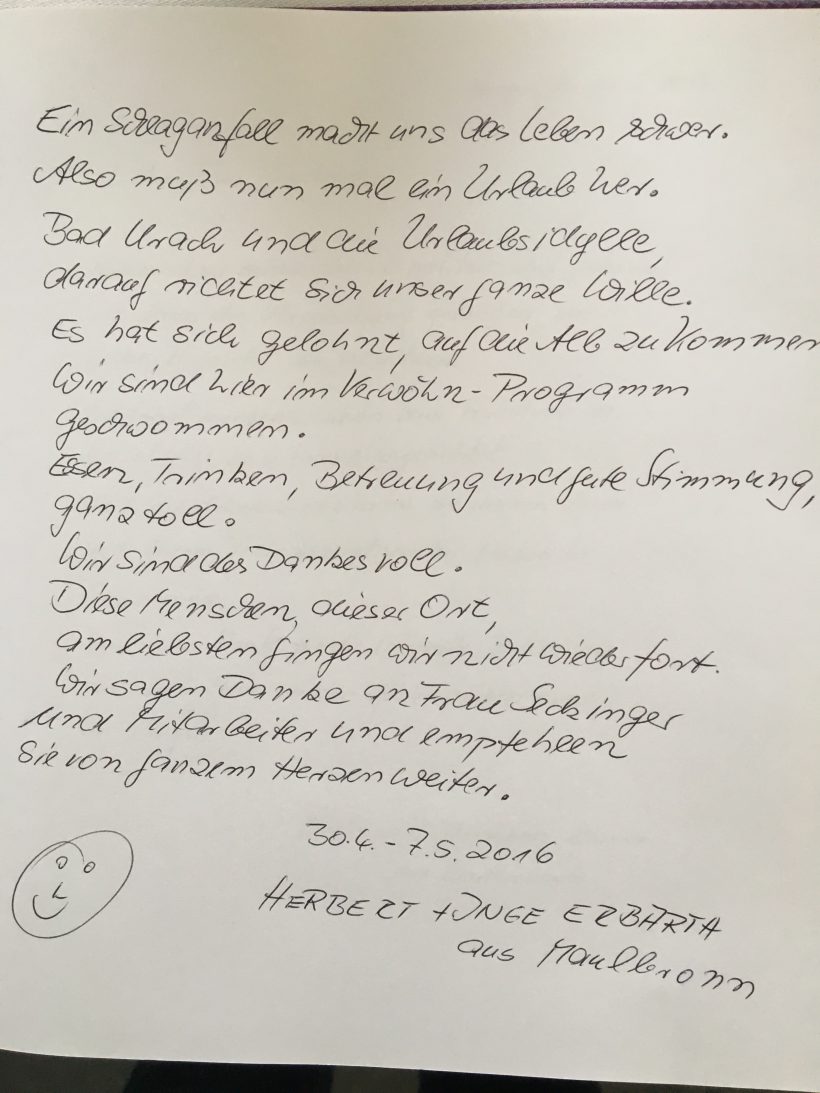 Ein Schlaganfall macht uns das Leben schwer.
Also muß nun mal ein Urlaub her.
Bad Urach und die Urlaubsidylle,
darauf richtet sich unser ganze Wille.
Es hat sich gelohnt, auf die Alb zu kommen
Wir sind hier im Verwöhn-Programm
geschwommen.
Essen, Trinken, Betreuung und gute Stimmung,
ganz toll.
Wir sind des Dankes voll.
Diese Menschen, dieser Ort,
am liebsten gingen wir nicht wieder fort.
Wir sagen Danke an Frau Seckinger
und Mitarbeiter und empfehlen
Sie von ganzem Herzen weiter.
30.4. - 7.5.2016
HERBERT + INGE
aus Maulbronn